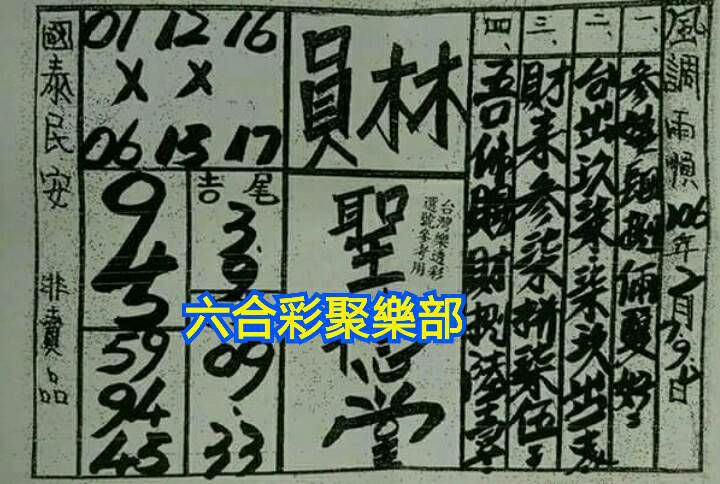 風調雨順 106年2月7.9.日
一、
二、台出玖柒.柒玖出
三、財來參柒拼柒伍
四、吾佛賜財捌陸
員林
台灣樂透彩
選號參考用
聖 堂
六合彩聚樂部
01 12 16
X X
06 15 17
吉尾
3.9
09.33
9
45
59
94
45
國泰民安 非賣品